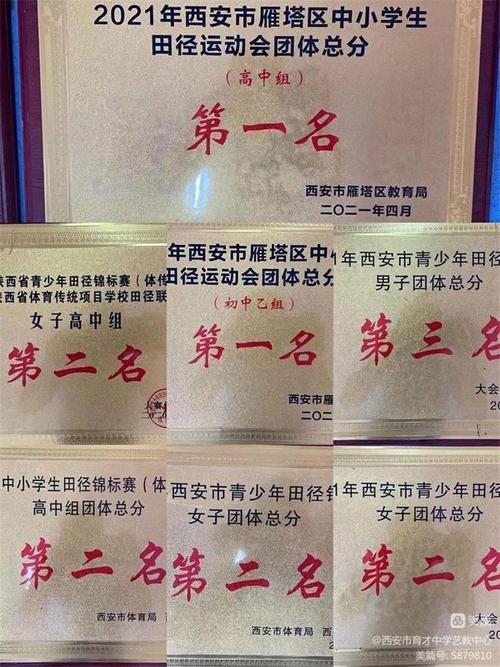 2021年西安市雁塔区中小学生
田径运动会团体总分
（高中组）
第一名
西安市雁塔区教育局
二〇二一年四月
陕西省青少年田径锦标赛（体传
陕西省体育传统项目学校田径联
女子高中组
第二名
年西安市雁塔区中
田径运动会团体总分
（初中乙组）
第一名
西安市雁
二〇二
1年西安市青少年田径
男子团体总分
第三名
大会
20
中小学生田径锦标赛（体
高中组团体总分
第二名
西安市体育局
西安市青少年田径锦
女子团体总分
第二名
西安市体育局
1年西安市青少年田径
女子团体总分
第二名
大会
@西安市育才中学艺教中心
美篇号: 5879810